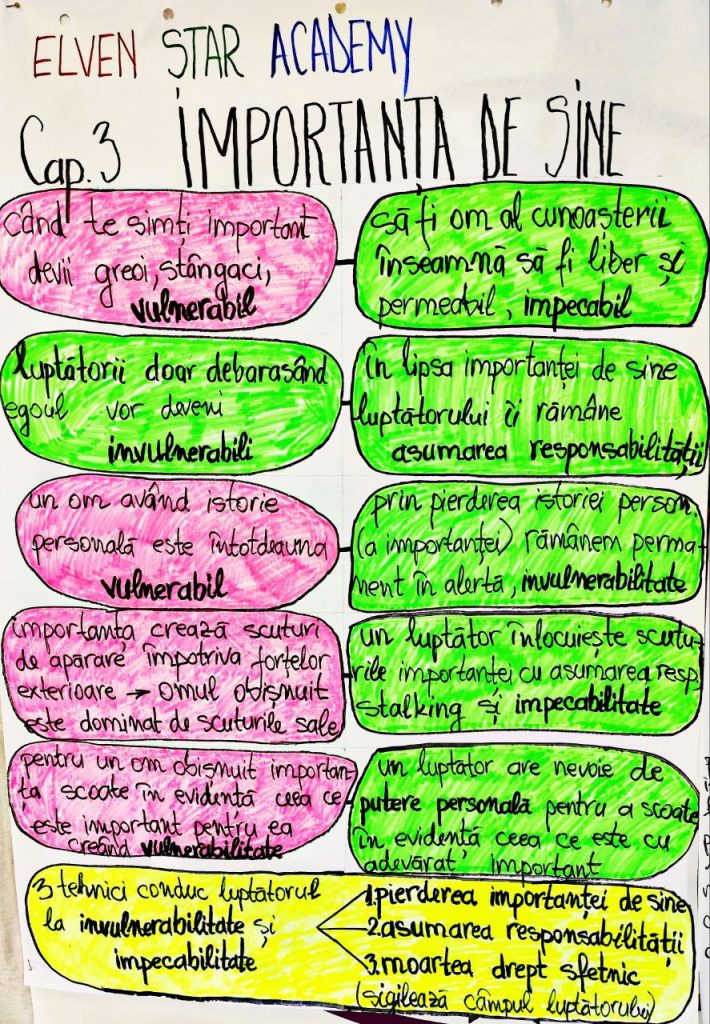 ELVEN STAR ACADEMY
Cap. 3 IMPORTANȚA DE SINE
când te simți important
devii greoi, stângaci,
vulnerabil
să fi om al cunoașterii
înseamnă să fi liber și
permeabil, impecabil
luptătorii doar debarasând
egoul vor deveni
invulnerabili
în lipsa importanței de sine
luptătorului îi rămâne
asumarea responsabilității
un om având istorie
personală este întotdeauna
vulnerabil
prin pierderea istoriei person.
(a importanței) rămânem perma-
ment în alertă, invulnerabilitate
importanța crează scuturi
de apărare împotriva forțelor
exterioare → omul obișnuit
este dominat de scuturile sale
un luptător înlocuiește scutu-
rile importanței cu asumarea resp.
stalking și impecabilitate
pentru un om obișnuit importan-
ța scoate în evidență ceea ce
este important pentru ea
creând vulnerabilitate
un luptător are nevoie de
putere personală pentru a scoate
în evidență ceea ce este cu
adevărat important
3 tehnici conduc luptătorul
la invulnerabilitate și
impecabilitate
1. pierderea importanței de sine
2. asumarea responsabilității
3. moartea drept sfetnic
(sigilează câmpul luptătorului)